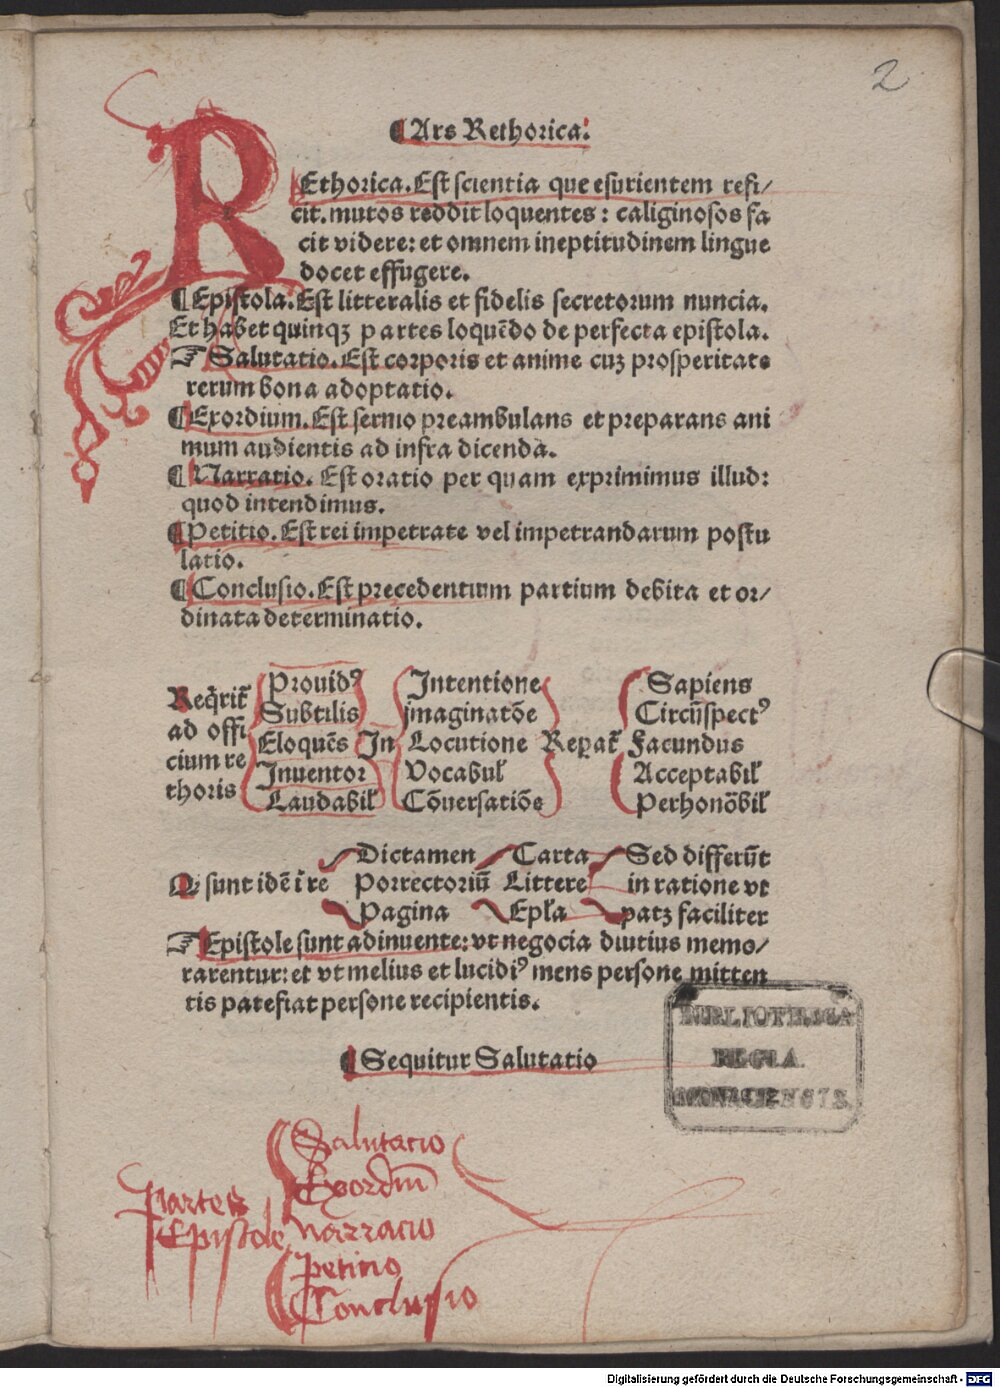 2
¶Ars Rethorica.
REthorica. Est scientia que esurientem refi/
cit. mutos reddit loquentes: caliginosos fa
cit videre: et omnem ineptitudinem lingue
docet effugere.
¶Epistola. Est litteralis et fidelis secretorum nuncia.
Et habet quinqꝫ partes loquēdo de perfecta epistola.
☞ Salutatio. Est corporis et anime cuꝫ prosperitate
rerum bona adoptatio.
¶Exordium. Est sermo preambulans et preparans ani
mum audientis ad infra dicenda.
¶Narratio. Est oratio per quam exprimimus illud:
quod intendimus.
¶Petitio. Est rei impetrate vel impetrandarum postu
latio.
¶Conclusio. Est precedentium partium debita et or/
dinata determinatio.
Reqͥrit᷑ ad offi cium re thoris
Prouidꝰ Intentione Sapiens
Subtilis jmaginatōe Circūspectꝰ
Eloquēs In Locutione Repat᷑ Facundus
Inuentor Vocabul᷑ Acceptabil᷑
Laudabil᷑ Cōuersatiōe Perhonōbil᷑
Dictamen Carta Sed differūt
sunt idē ī re Porrectoriū Littere in ratione vt
Pagina Epl̄a patꝫ faciliter
☞ Epistole sunt adinuente: vt negocia diutius memo/
rarentur: et vt melius et lucidiꝰ mens persone mitten
tis patefiat persone recipientis.
¶Sequitur Salutatio
BIBLIOTHECA
REGIA
MONACENSIS.
Partes Epistole
Salutacio
Exordiū
Narracio
Peticio
Conclusio
Digitalisierung gefördert durch die Deutsche Forschungsgemeinschaft - DFG